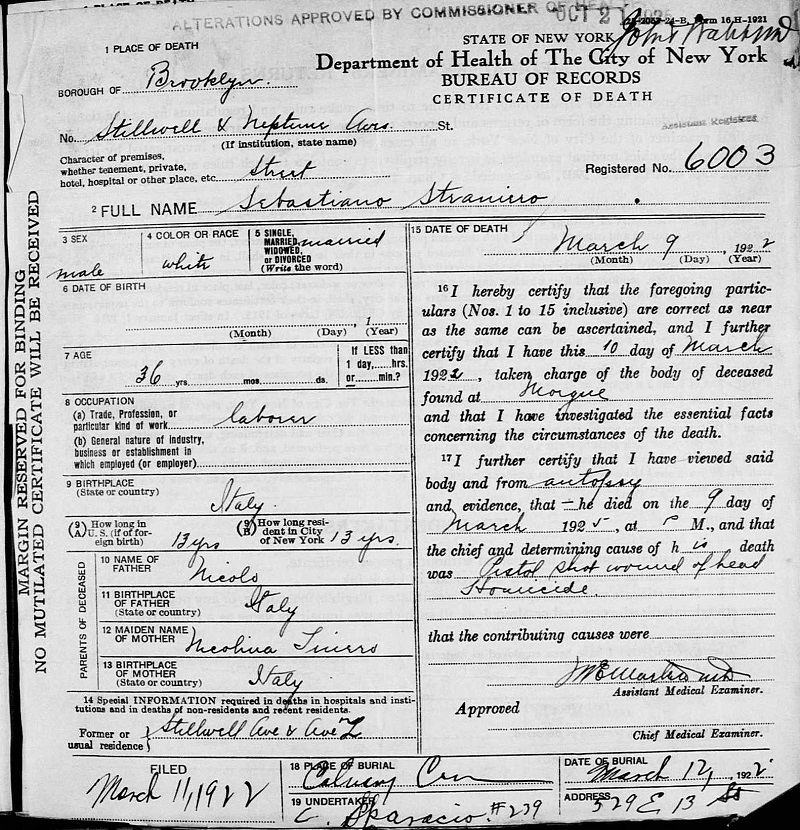 1 PLACE OF DEATH
ALTERATIONS APPROVED BY COMMISSIONER OF
OCT 2
Form 16 H-1921
STATE OF NEW YORK
Department of Health of The City of New York
BUREAU OF RECORDS
CERTIFICATE OF DEATH
Assistant Registrar
BOROUGH OF Brooklyn
No. Stillwell & Neptune Aves. St.
(If institution, state name)
Character of premises,
whether tenement, private,
hotel, hospital or other place, etc. Street
Registered No. 6003
2 FULL NAME Sebastiano Stranirro
3 SEX male
4 COLOR OR RACE white
5 SINGLE, MARRIED, WIDOWED, or DIVORCED (Write the word) married
6 DATE OF BIRTH
, 1
(Month) (Day) (Year)
7 AGE
36 yrs. mos. ds.
If LESS than
1 day,......hrs.
or......min.?
8 OCCUPATION
(a) Trade, Profession, or
particular kind of work laborer
(b) General nature of industry,
business or establishment in
which employed (or employer)
9 BIRTHPLACE
(State or country) Italy
(9 A) How long in U. S. (if of foreign birth) 13 yrs
(9 B) How long resident in City of New York 13 yrs.
PARENTS OF DECEASED
10 NAME OF
FATHER Nicolo
11 BIRTHPLACE
OF FATHER
(State or country) Italy
12 MAIDEN NAME
OF MOTHER Nicolina
13 BIRTHPLACE
OF MOTHER
(State or country) Italy
14 Special INFORMATION required in deaths in hospitals and insti-
tutions and in deaths of non-residents and recent residents.
Former or
usual residence } Stillwell Ave & Ave L
15 DATE OF DEATH
March 9, 1922
(Month) (Day) (Year)
16 I hereby certify that the foregoing partic-
ulars (Nos. 1 to 15 inclusive) are correct as near
as the same can be ascertained, and I further
certify that I have this 10 day of March
1922, taken charge of the body of deceased
found at Morgue
and that I have investigated the essential facts
concerning the circumstances of the death.
17 I further certify that I have viewed said
body and from autopsy
and evidence, that he died on the 9 day of
March 1925, at P M., and that
the chief and determining cause of h is death
was Pistol shot wound of head
Homicide.
that the contributing causes were
Assistant Medical Examiner.
Approved
Chief Medical Examiner.
FILED
March 11, 1922
18 PLACE OF BURIAL
Calvary Cem
DATE OF BURIAL
March 12, 1922
19 UNDERTAKER
C. Sparacio #239
ADDRESS
329 E 13 St
MARGIN RESERVED FOR BINDING
NO MUTILATED CERTIFICATE WILL BE RECEIVED